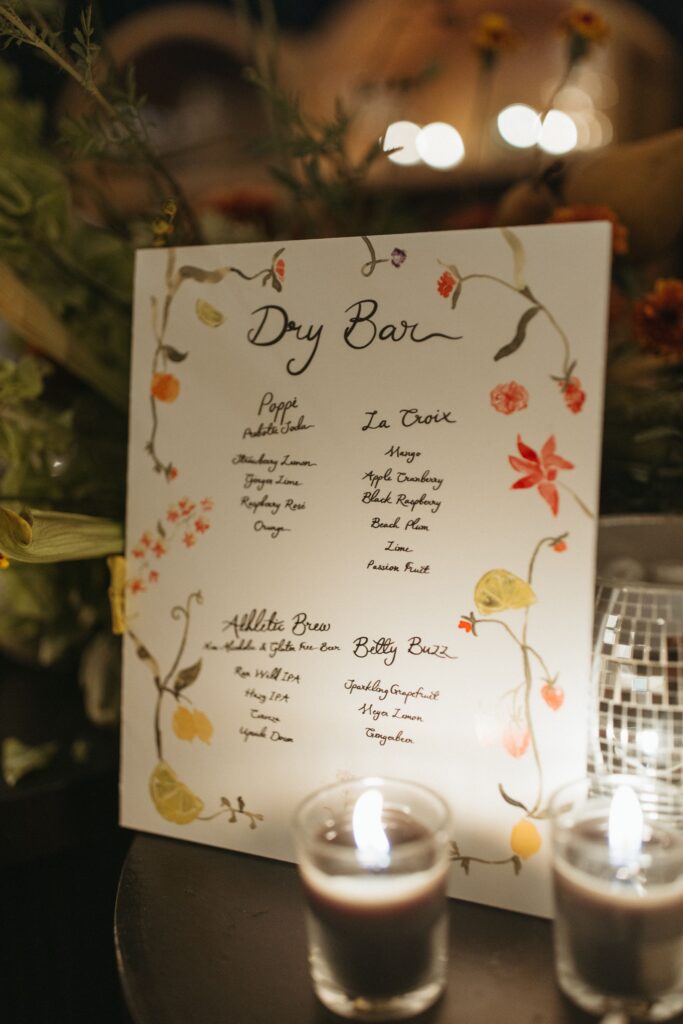 Dry Bar
Poppi
Probiotic Soda
Strawberry Lemon
Ginger Lime
Raspberry Rosé
Orange
La Croix
Mango
Apple Cranberry
Black Raspberry
Beach Plum
Lime
Passion Fruit
Athletic Brew
Non Alcoholic & Gluten Free Beer
Run Wild IPA
Hazy IPA
Cerveza
Upside Dawn
Betty Buzz
Sparkling Grapefruit
Meyer Lemon
Gingerbeer